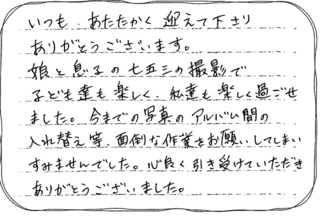 いつも、あたたかく迎えて下さり
ありがとうございます。
娘と息子の七五三の撮影で
子ども達も楽しく、私達も楽しく過ごせ
ました。今までの写真のアルバム間の
入れ替え等、面倒な作業をお願いしてしまい
すみませんでした。心良く引き受けていただき
ありがとうございました。